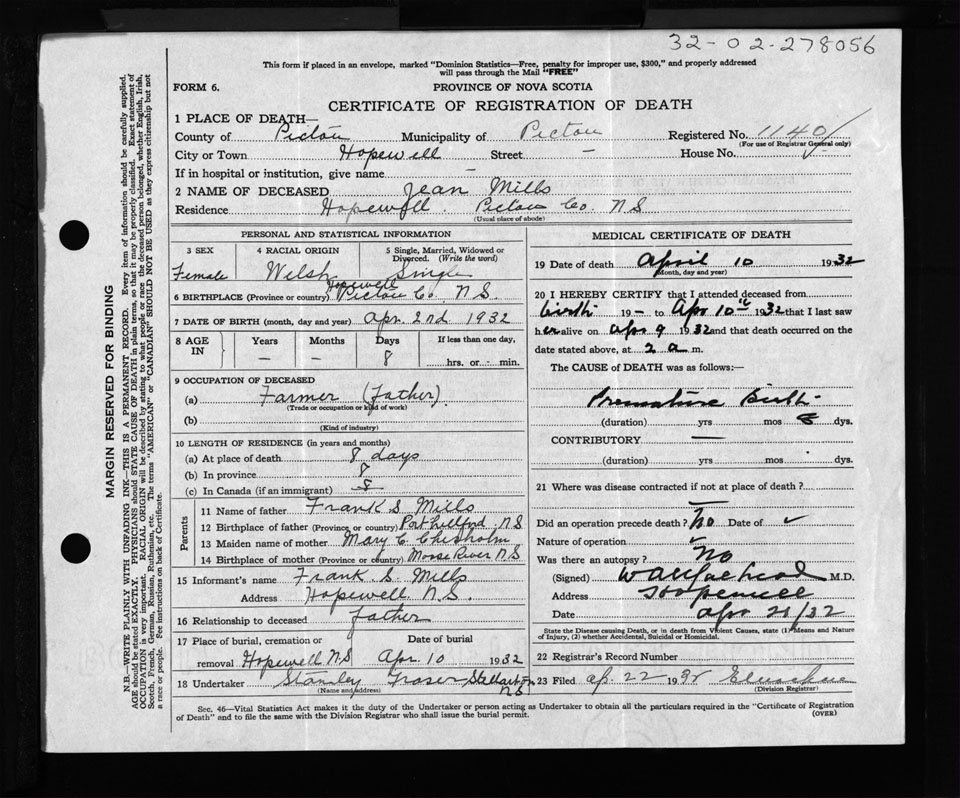 32-02-278056
This form if placed in an envelope, marked "Dominion Statistics—Free, penalty for improper use, $300," and properly addressed
will pass through the Mail "FREE"
FORM 6.
PROVINCE OF NOVA SCOTIA
CERTIFICATE OF REGISTRATION OF DEATH
1 PLACE OF DEATH—
County of Pictou Municipality of Pictou Registered No. 1140
(For use of Registrar General only)
City or Town Hopewell Street – House No.
If in hospital or institution, give name –
2 NAME OF DECEASED Jean Mills
Residence Hopewell. Pictou Co. N S
(Usual place of abode)
PERSONAL AND STATISTICAL INFORMATION
3 SEX 4 RACIAL ORIGIN 5 Single, Married, Widowed or
Divorced. (Write the word)
Female Welsh Single
Hopewell
6 BIRTHPLACE (Province or country) Pictou Co. N.S.
7 DATE OF BIRTH (month, day and year) Apr. 2nd 1932
8 AGE IN Years Months Days If less than one day,
– – 8 hrs. or - min.
9 OCCUPATION OF DECEASED
(a) Farmer (Father)
(Trade or occupation or kind of work)
(b)
(Kind of industry)
10 LENGTH OF RESIDENCE (in years and months)
(a) At place of death 8 days
(b) In province 8
(c) In Canada (if an immigrant) 8
Parents
11 Name of father Frank S. Mills
12 Birthplace of father (Province or country) Port Hilford, N S
13 Maiden name of mother Mary C. Chisholm
14 Birthplace of mother (Province or country) Moose River N S
15 Informant's name Frank. S. Mills
Address Hopewell N.S.
16 Relationship to deceased father
17 Place of burial, cremation or Date of burial
removal Hopewell N.S Apr. 10 1932
18 Undertaker Stanley Fraser Stellarton N S
(Name and address)
MEDICAL CERTIFICATE OF DEATH
19 Date of death April 10 1932
(Month, day and year)
20 I HEREBY CERTIFY that I attended deceased from
birth 19 – to Apr 10th 1932 that I last saw
her alive on Apr 9 1932 and that death occurred on the
date stated above, at 2 a m.
The CAUSE of DEATH was as follows:—
Premature Birth
(duration) yrs mos 8 dys.
CONTRIBUTORY —
(duration) yrs mos dys.
21 Where was disease contracted if not at place of death?
—
Did an operation precede death? No Date of
Nature of operation
Was there an autopsy? No
(Signed) M.D.
Address Hopewell
Date Apr 21/32
State the Disease causing Death, or in death from Violent Causes, state (1) Means and Nature
of Injury, (2) whether Accidental, Suicidal or Homicidal.
22 Registrar's Record Number
23 Filed Ap. 22 1932
(Division Registrar)
Sec. 46—Vital Statistics Act makes it the duty of the Undertaker or person acting as Undertaker to obtain all the particulars required in the "Certificate of Registration
of Death" and to file the same with the Division Registrar who shall issue the burial permit.
(OVER)
MARGIN RESERVED FOR BINDING
N.B.—WRITE PLAINLY WITH UNFADING INK—THIS IS A PERMANENT RECORD. Every item of information should be carefully supplied.
AGE should be stated EXACTLY. PHYSICIANS should STATE CAUSE OF DEATH in plain terms, so that it may be properly classified. Exact statement of
OCCUPATION is very important. RACIAL ORIGIN will be described by stating to what people or race the deceased person belonged, whether English, Irish,
Scotch, French, German, Russian, Ruthenian, etc. The terms "AMERICAN" or "CANADIAN" SHOULD NOT BE USED as they express citizenship but not
a race or people. See instructions on back of Certificate.